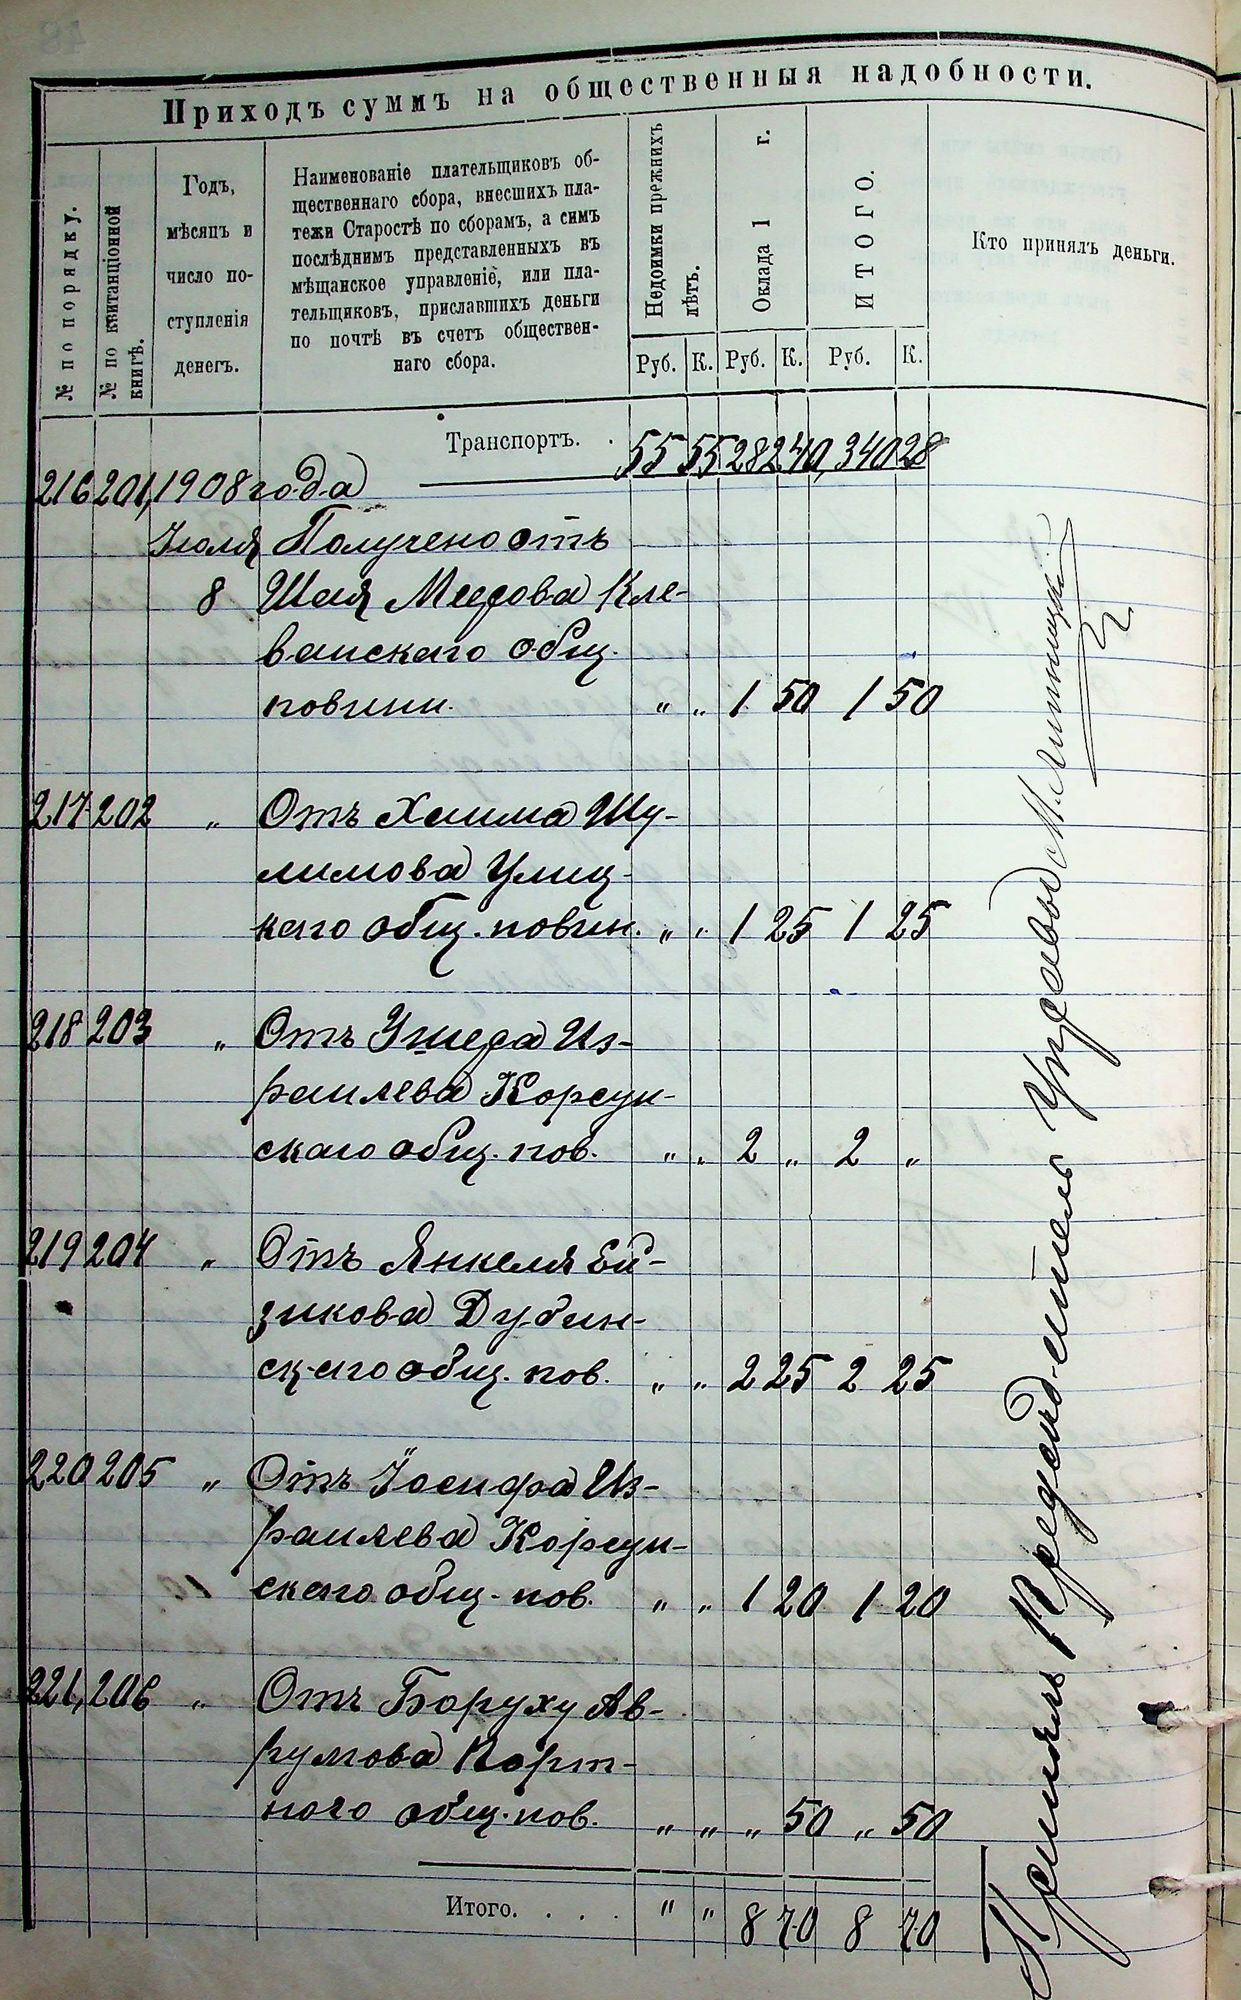 Приходъ суммъ на общественныя надобности.
№ по порядку.
№ по квитанціонной книгѣ.
Годъ,
мѣсяцъ и
число по-
ступленія
денегъ.
Наименованіе плательщиковъ об-
щественнаго сбора, внесшихъ пла-
тежи Старостѣ по сборамъ, а симъ
послѣднимъ представленныхъ въ
мѣщанское управленіе, или пла-
тельщиковъ, приславшихъ деньги
по почтѣ въ счетъ обществен-
наго сбора.
Недоимки прежнихъ лѣтъ.
Оклада 1 г.
ИТОГО.
Кто принялъ деньги.
Руб. К. Руб. К. Руб. К.
Транспортъ. . 55 55 282 40 340 28
216 201, 1908 года
Июля Получено отъ
8 Шая Меерова Кле-
ванскаго общ.
повинн. " " 1 50 1 50
217 202 " Отъ Хаима Шу-
лимова Улиц-
каго общ. повин. " " 1 25 1 25
218 203 " Отъ Ушера Из-
раилева Корсун-
скаго общ. пов. " " 2 " 2 "
219 204 " Отъ Янкеля Ей-
зикова Дубин-
скаго общ. пов. " " 2 25 2 25
220 205 " Отъ Іосифа Из-
раилева Корсун-
скаго общ. пов. " " 1 20 1 20
221, 206 " Отъ Боруху Ав-
румова Порт-
ного общ. пов. " " " 50 " 50
Итого. . . . " " 8 70 8 70
Принялъ Председатель Управы